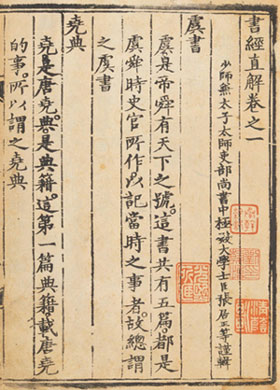 書經直解卷之一
少師兼太子太師吏部尚書中極殿大學士臣張居正等謹輯
虞書
虞是帝舜有天下之號。這書共有五篇。都是
虞舜時史官所作。以記當時之事者。故總謂
之虞書
堯典
堯是唐堯。典是典籍。這第一篇典籍載唐堯
的事。所以謂之堯典